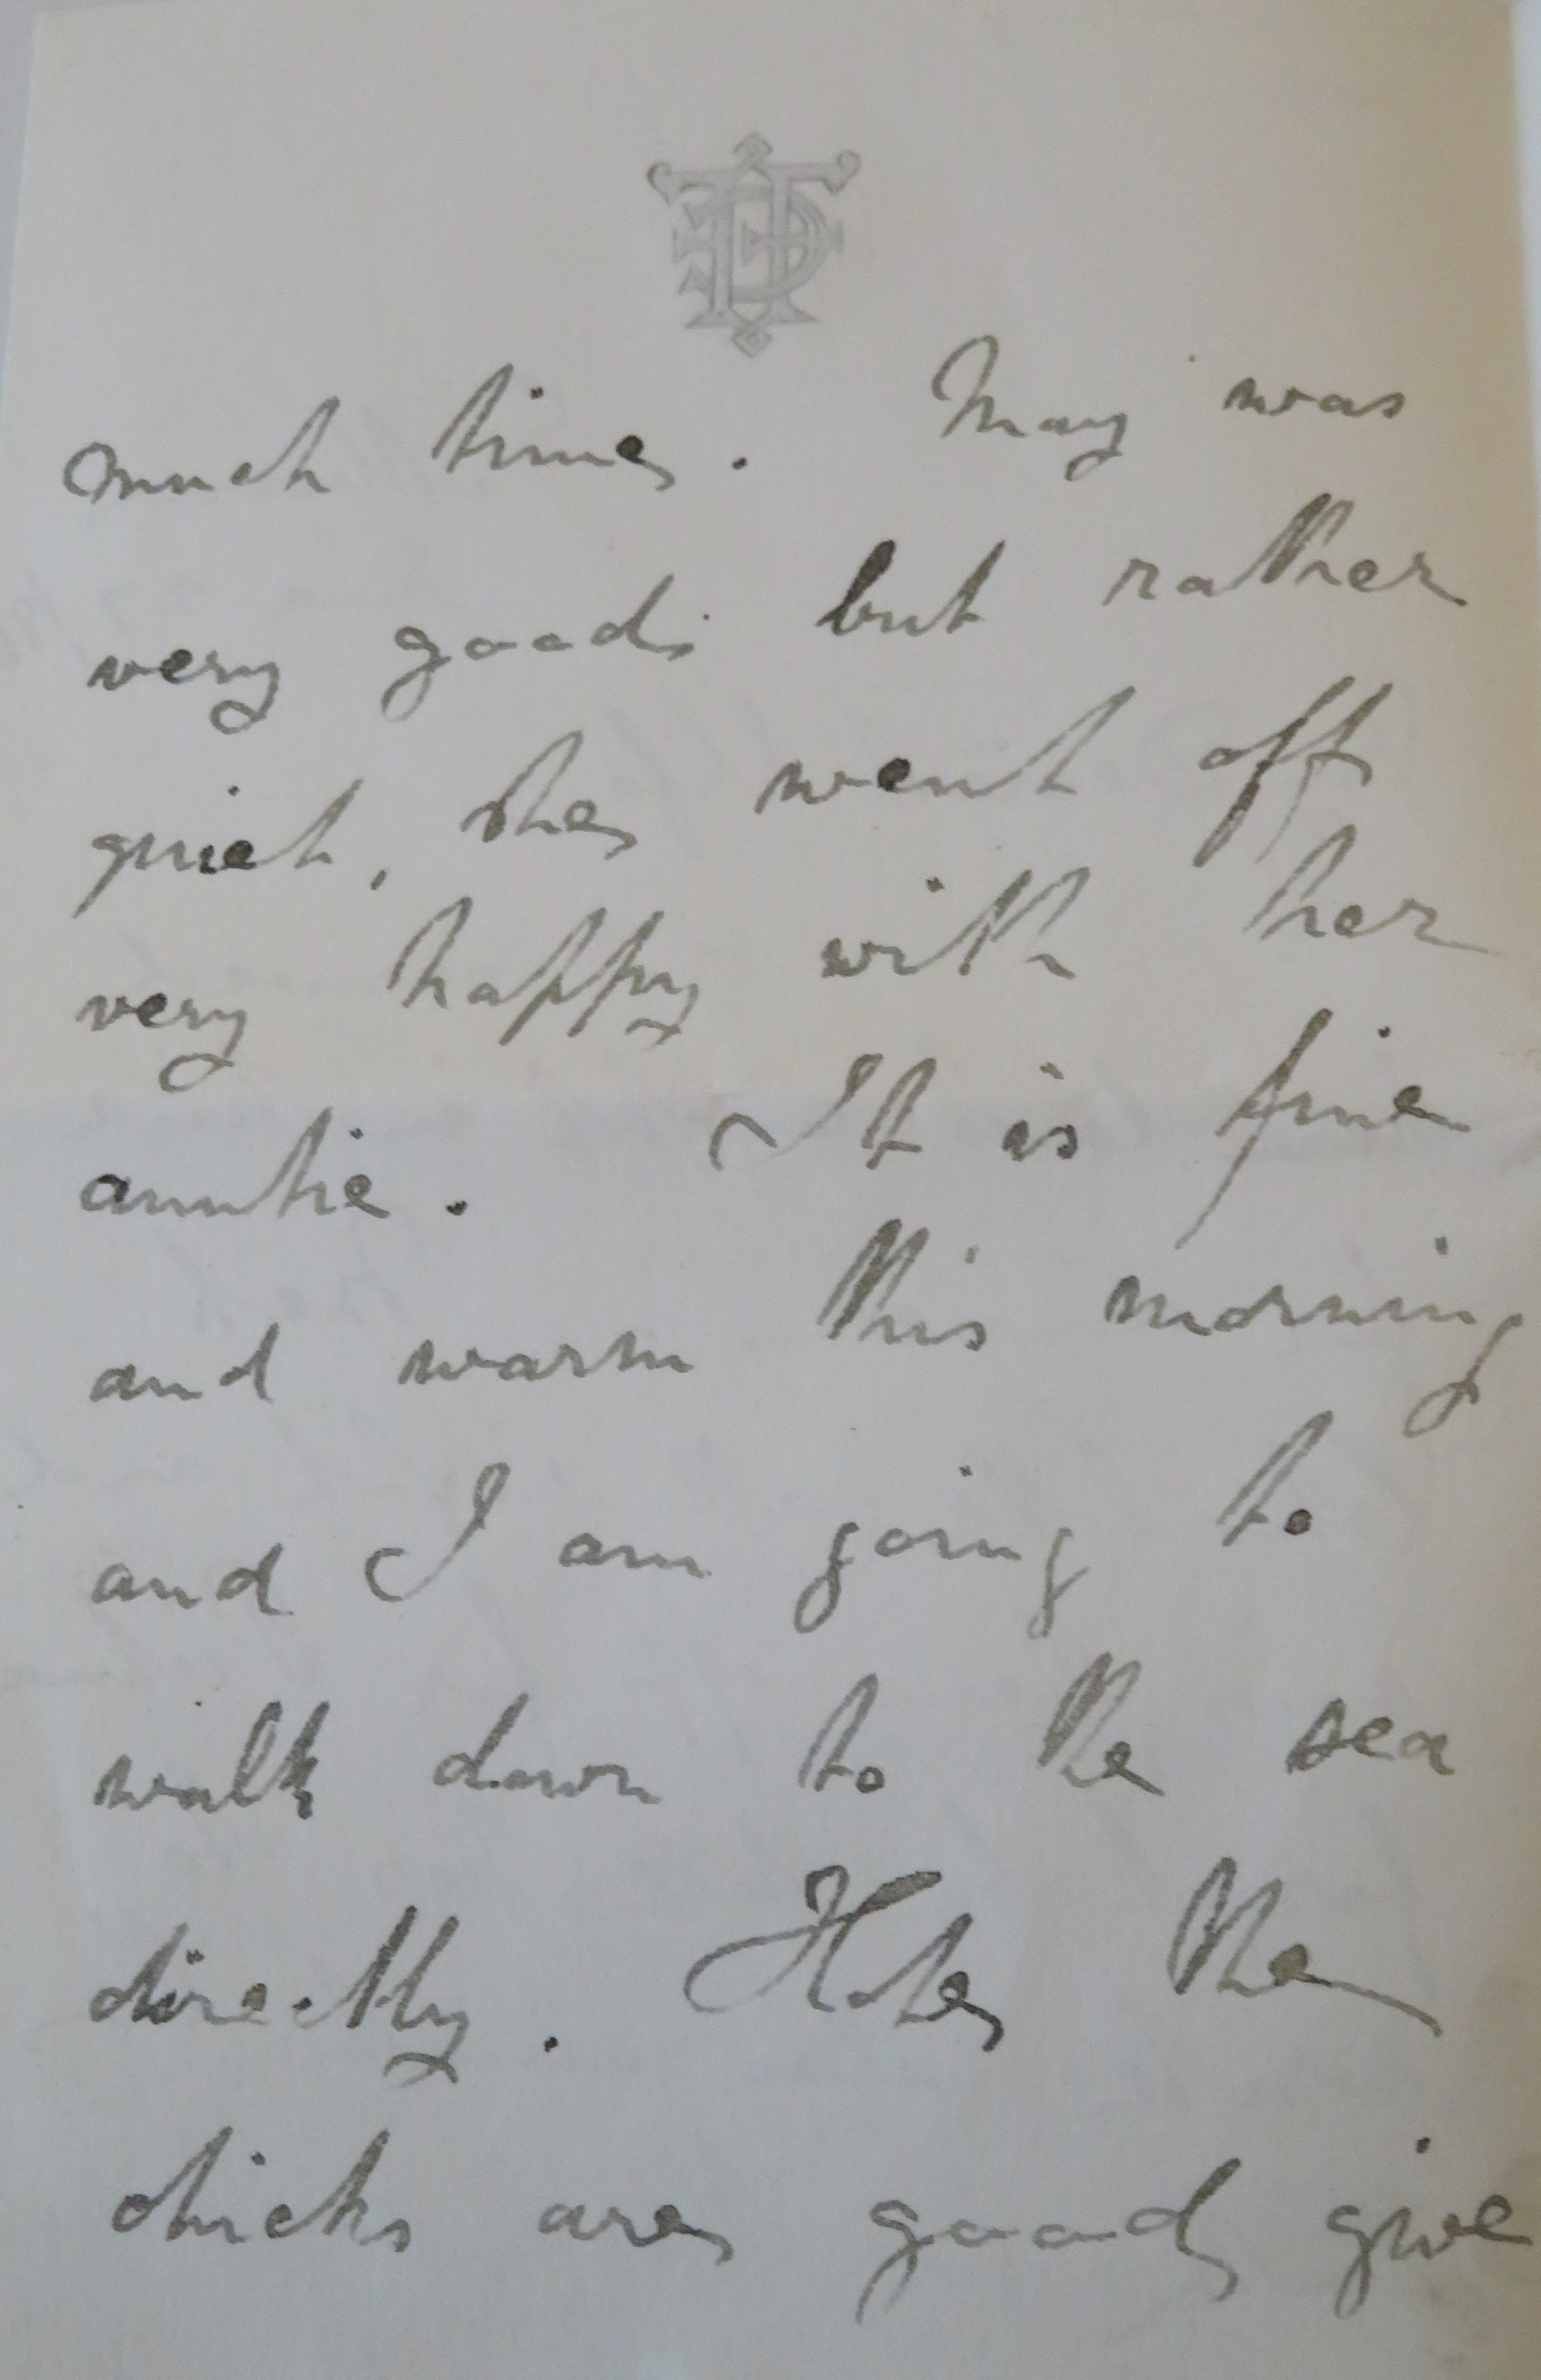 much time. May was
very good but rather
quiet, she went off
very happy with her
auntie. It is fine
and warm this morning
and I am going to
walk down to the sea
directly. the
chicks are good give